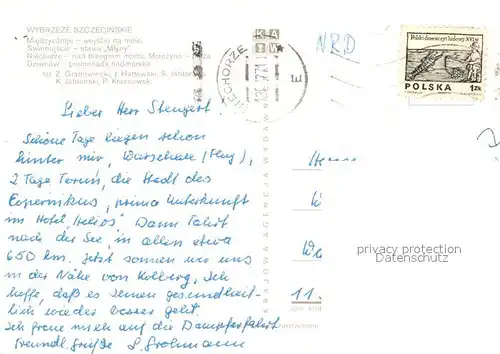 WYBRZEŻE SZCZECIŃSKIE
Międzyzdroje — wejście na molo,
Świnoujście — stawa „Młyny"
Niechorze — nad brzegiem morza, Mrzeżyno — plaża,
Dziwnów — promenada nadmorska
fot. Z. Grabowiecki, J. Hattowski, S. Jabłoński
K. Jabłoński, P. Krassowski
NIECHORZE
NRD
Polski drzeworyt ludowy XVI w.
POLSKA 1zł
Lieber Herr Stengert.
Schöne Tage liegen schon
hinter mir, Warschau (Flug),
2 Tage Torun, die Stadt des
Copernikus, prima Unterkunft
im Hotel „Helios". Dann Fahrt
nach der See, in allem etwa
650 km. Jetzt sonnen wir uns
in der Nähe von Kolberg. Ich
hoffe, daß es Ihnen gesundheit-
lich wieder besser geht.
Ich freue mich auf die Dampferfahrt
Freundl. Grüße S. Grohmann
KRAJOWA AGENCJA WYDAW
Herrn
11.
privacy protection
Datenschutz